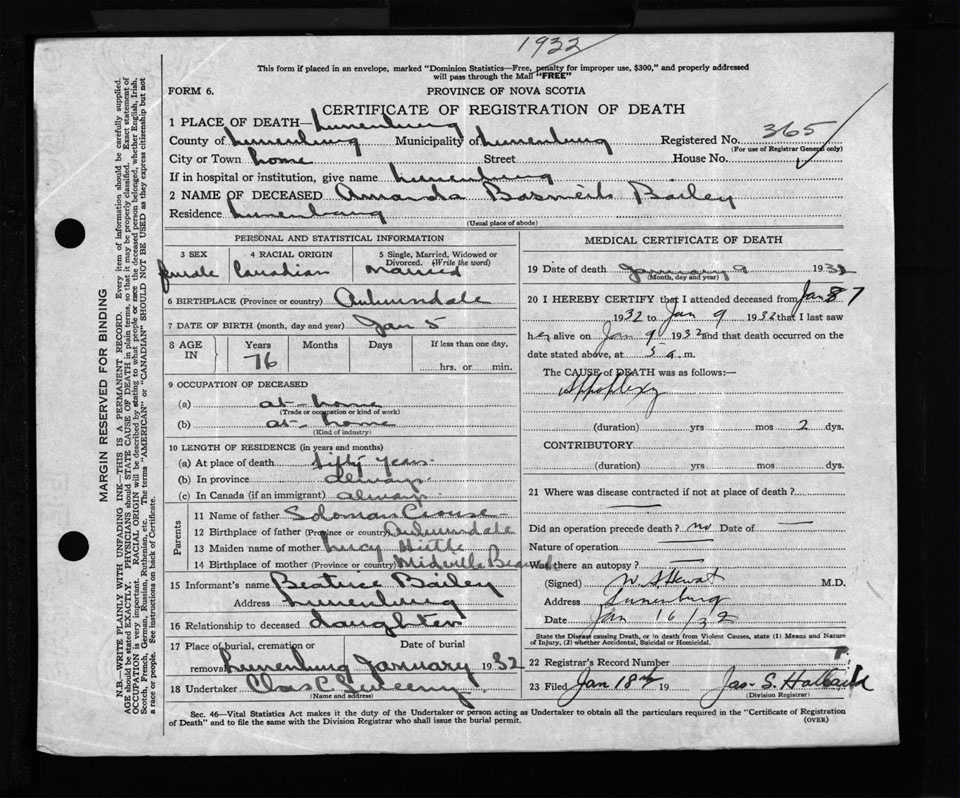 1932
This form if placed in an envelope, marked "Dominion Statistics—Free, penalty for improper use, $300," and properly addressed
will pass through the Mail "FREE"
FORM 6.
PROVINCE OF NOVA SCOTIA
CERTIFICATE OF REGISTRATION OF DEATH
1 PLACE OF DEATH— Lunenburg
County of Lunenburg Municipality of Lunenburg Registered No. 365
(For use of Registrar General only)
City or Town home Street House No.
If in hospital or institution, give name Lunenburg
2 NAME OF DECEASED Amanda Bailey
Residence Lunenburg
(Usual place of abode)
PERSONAL AND STATISTICAL INFORMATION
3 SEX 4 RACIAL ORIGIN 5 Single, Married, Widowed or
Divorced. (Write the word)
female Canadian Married
6 BIRTHPLACE (Province or country) Auburndale
7 DATE OF BIRTH (month, day and year) Jan 5
8 AGE IN Years Months Days If less than one day,
76 hrs. or min.
9 OCCUPATION OF DECEASED
(a) at-home
(Trade or occupation or kind of work)
(b) at-home
(Kind of industry)
10 LENGTH OF RESIDENCE (in years and months)
(a) At place of death fifty years
(b) In province always
(c) In Canada (if an immigrant) always
Parents
11 Name of father Soloman Crouse
12 Birthplace of father (Province or country) Auburndale
13 Maiden name of mother Lucy
14 Birthplace of mother (Province or country) Midville
15 Informant's name Beatrice Bailey
Address Lunenburg
16 Relationship to deceased daughter
17 Place of burial, cremation or Date of burial
removal Lunenburg January 1932
18 Undertaker Chas Sweeny
(Name and address)
MEDICAL CERTIFICATE OF DEATH
19 Date of death January 9 1932
(Month, day and year)
20 I HEREBY CERTIFY that I attended deceased from Jan 7
1932 to Jan 9 1932 that I last saw
her alive on Jan 9 1932 and that death occurred on the
date stated above, at 5 a. m.
The CAUSE of DEATH was as follows:—
Appoplexy
(duration) yrs mos 2 dys.
CONTRIBUTORY
(duration) yrs mos dys.
21 Where was disease contracted if not at place of death?
Did an operation precede death? no Date of
Nature of operation
Was there an autopsy?
(Signed) W. Stewart M.D.
Address Lunenburg
Date Jan 16/32
State the Disease causing Death, or in death from Violent Causes, state (1) Means and Nature
of Injury, (2) whether Accidental, Suicidal or Homicidal.
22 Registrar's Record Number
23 Filed Jan 18th 19 Jas. S.
(Division Registrar)
Sec. 46—Vital Statistics Act makes it the duty of the Undertaker or person acting as Undertaker to obtain all the particulars required in the "Certificate of Registration
of Death" and to file the same with the Division Registrar who shall issue the burial permit.
(OVER)
MARGIN RESERVED FOR BINDING
N.B.—WRITE PLAINLY WITH UNFADING INK—THIS IS A PERMANENT RECORD. Every item of information should be carefully supplied.
AGE should be stated EXACTLY. PHYSICIANS should STATE CAUSE OF DEATH in plain terms, so that it may be properly classified. Exact statement of
OCCUPATION is very important. RACIAL ORIGIN will be described by stating to what people or race the deceased person belonged, whether English, Irish,
Scotch, French, German, Russian, Ruthenian, etc. The terms "AMERICAN" or "CANADIAN" SHOULD NOT BE USED as they express citizenship but not
a race or people. See instructions on back of Certificate.